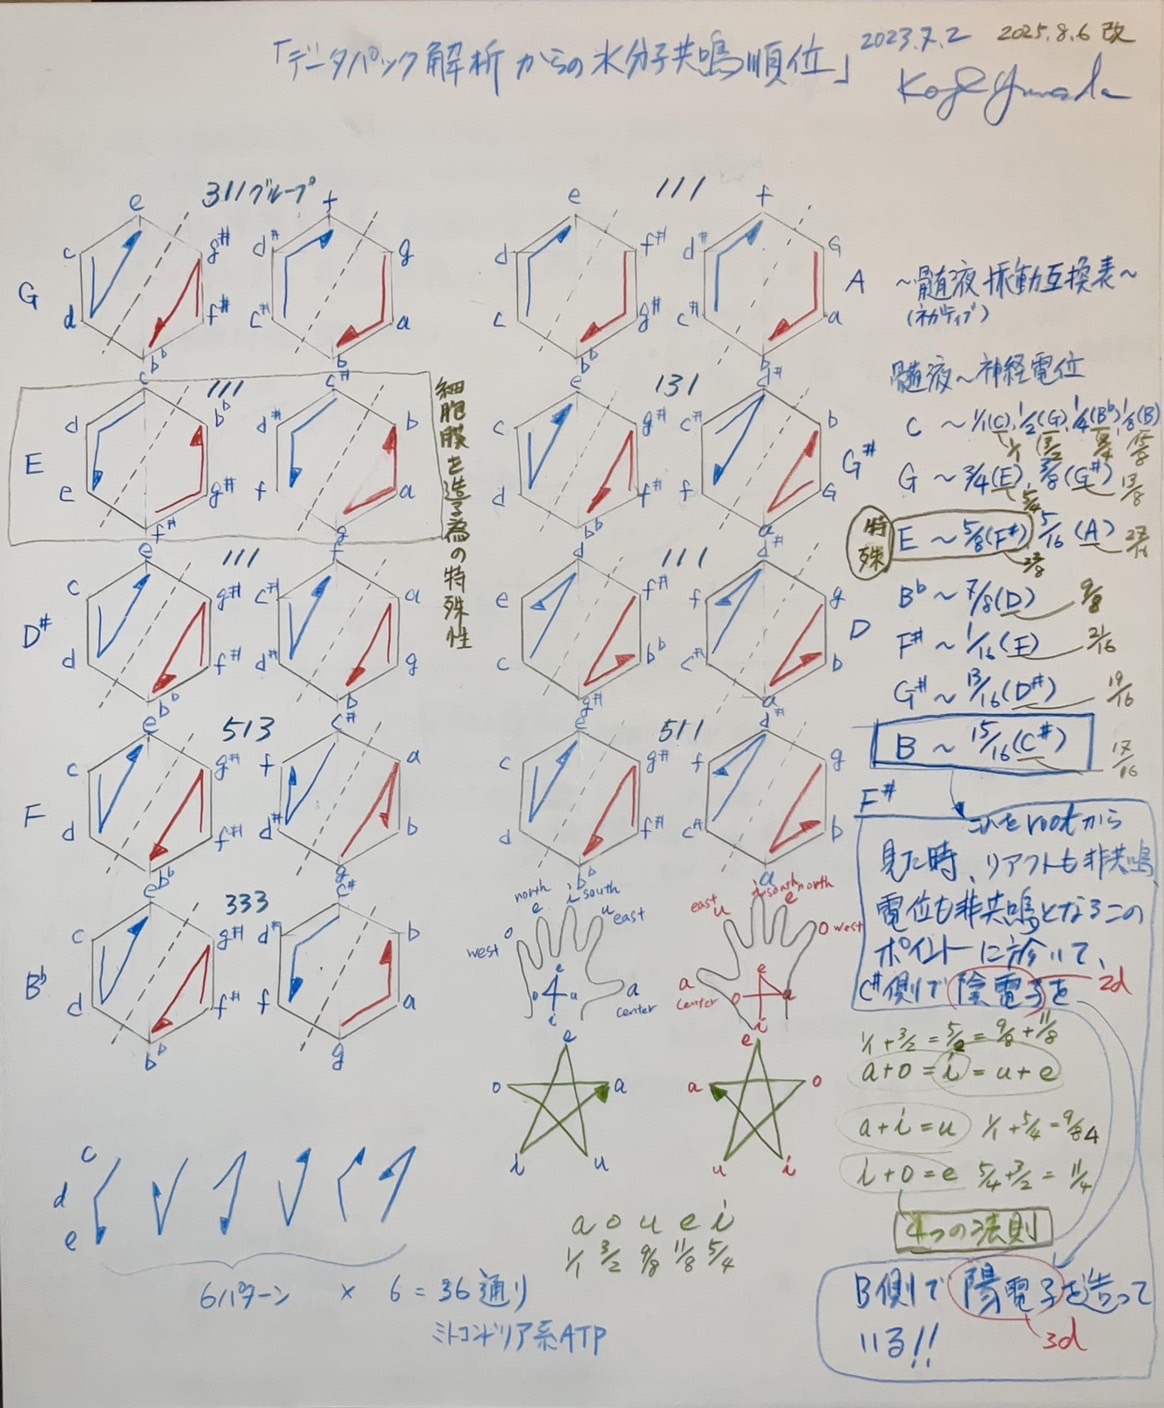 「データパック解析からの水分子共鳴順位」 2023.7.2 2025.8.6 改
311グループ
111
G
e
c
d
g#
f#
b♭
f
d#
c#
g
a
b
e
d
c
f#
g#
b♭
f
d#
c#
G
a
b
A
～髄液振動互換表～
(ネガティブ)
髄液～神経電位
111
131
E
c
d
e
b♭
g#
f#
c#
d#
f
b
a
g
細胞膜を造る為の特殊性
e
c
d
g#
f#
b♭
d#
c#
f
b
G
a
G#
C ～ 1/1(C), 1/2(G), 1/4(B♭), 1/8(B)
G ～ 3/4(E), 3/8(G#) 13/8
5/4
特殊
E ～ 5/8(F#), 5/16(A)
B♭ ～ 7/8(D) 9/8
F# ～ 1/16(F) 21/16
G# ～ 13/16(D#) 19/16
B ～ 15/16(C#) 17/16
111
111
D#
e
c
d
g#
f#
b♭
f
c#
d#
a
g
b
d
e
c
f#
b♭
g#
d#
f
c#
g
b
a
D
513
511
F
e
c
d
g#
f#
b♭
c#
f
d#
a
b
g
e
c
d
g#
f#
b♭
d#
f
c#
g
b
a
F#
これをrootから
見た時、リアクトも非共鳴
電位も非共鳴となるこの
ポイントに於いて、
C#側で陰電子を
2d
333
B♭
e
c
d
g#
f#
b♭
c#
d#
f
b
a
g
north
e
i south
u
east
west
o
a
center
e
o
u
i
east
u
i south
north
e
o west
a
center
e
o
a
i
1/1+3/2=5/2=9/8+11/8
a+o=i=u+e
a+i=u 1/1+5/4=9/4
i+o=e 5/4+3/2=11/4
4つの法則
e
o
a
i
u
e
a
o
u
i
c
d
e
a o u e i
1/1 3/2 9/8 11/8 5/4
6パターン × 6 = 36通り
ミトコンドリア系ATP
B側で陽電子を造って
いる!!
3d